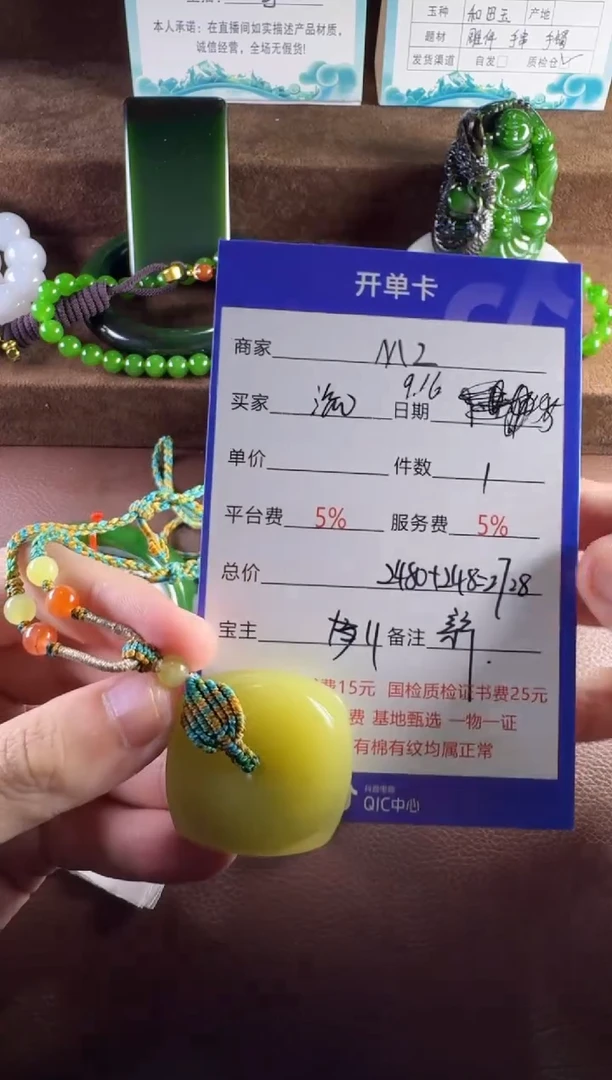 本人承诺：在直播间如实描述产品材质，
诚信经营，全场无假货！
玉种 和田玉 产地
题材
发货渠道 自发□ 质检仓
开单卡
商家 M2
买家 日期 9.16
单价 件数 1
平台费 5% 服务费 5%
总价 2480+248=2728
宝主 备注 新
费15元 国检质检证书费25元
费 基地甄选 一物一证
有棉有纹均属正常
抖音电商
QIC中心